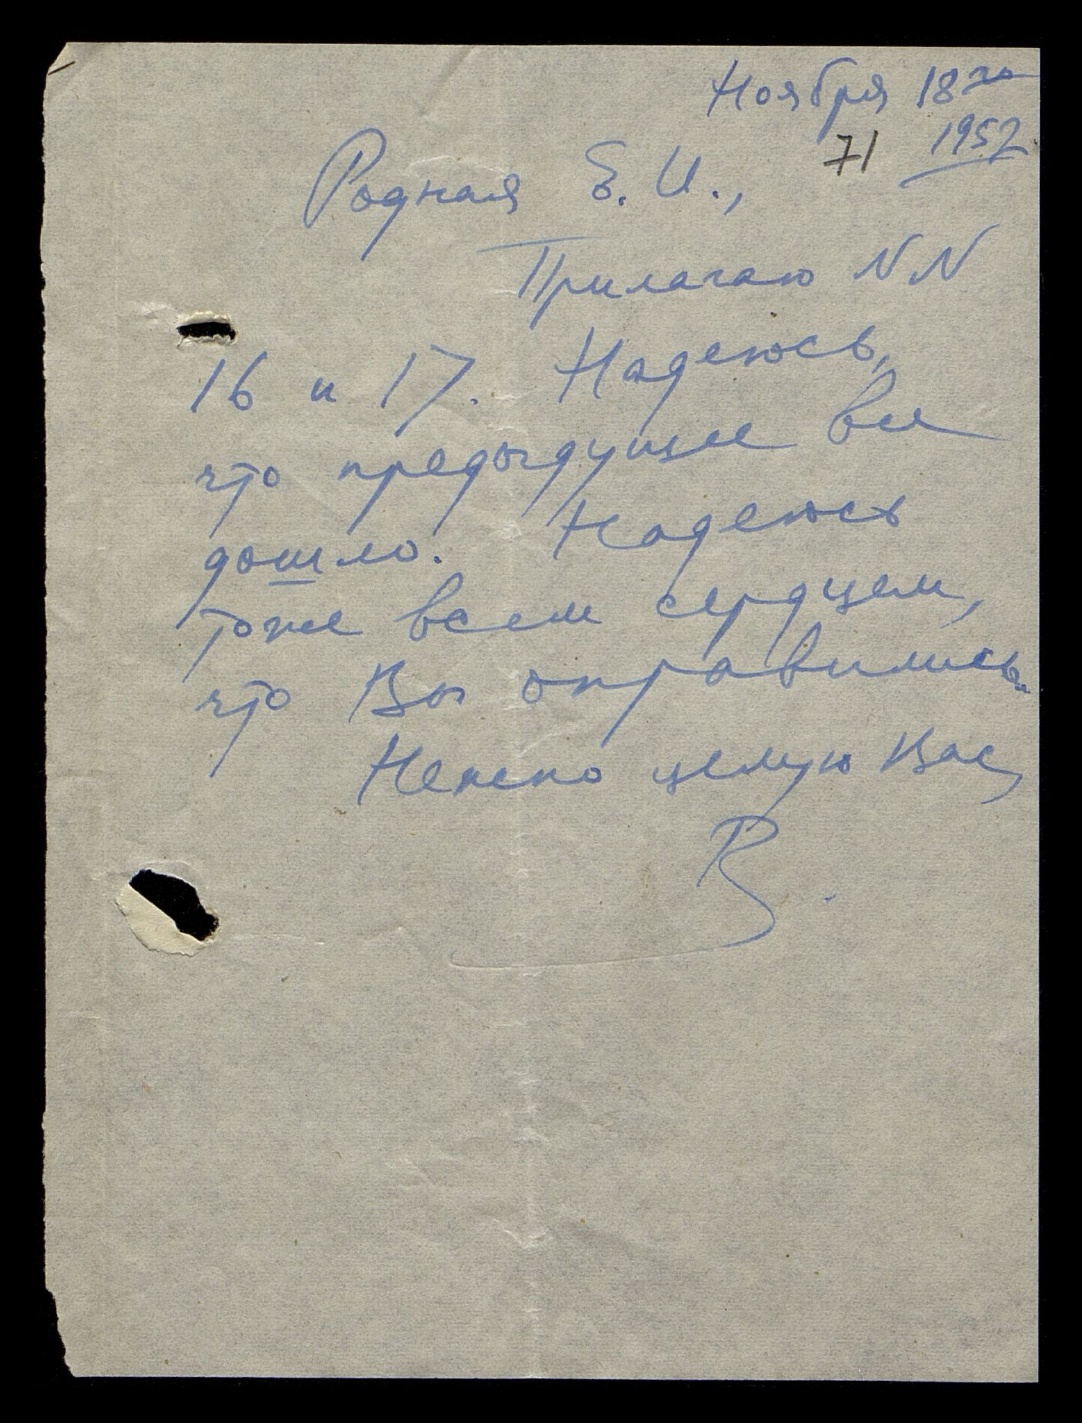 Ноября 18го
1952
71
Родная Е. И.,
Прилагаю NN
16 и 17. Надеюсь,
что предыдущее все
дошло. Надеюсь
тоже всем сердцем,
что Вы оправились.
Нежно целую Вас,
В.